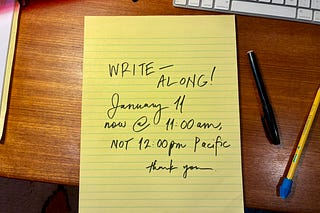 WRITE-
ALONG!
January 11
now @ 11:00am,
NOT 12:00pm Pacific
thank you.